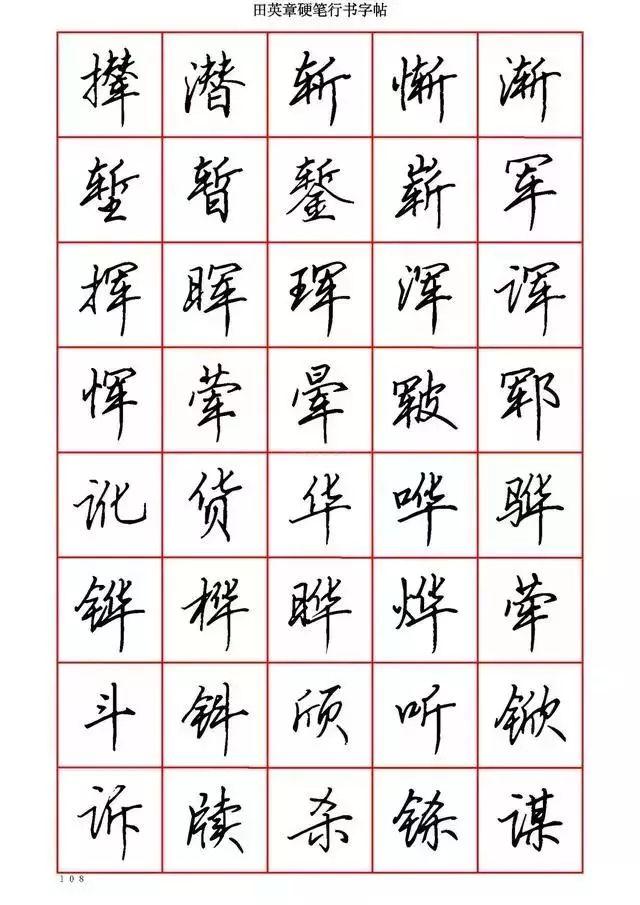 田英章硬笔行书字帖
撵 潜 斩 惭 渐
堑 暂 錾 崭 军
挥 晖 珲 浑 诨
恽 荤 晕 皲 郓
讹 货 华 哗 骅
铧 桦 晔 烨 荦
斗 钭 颀 听 锨
诉 牍 杀 铩 谋
108